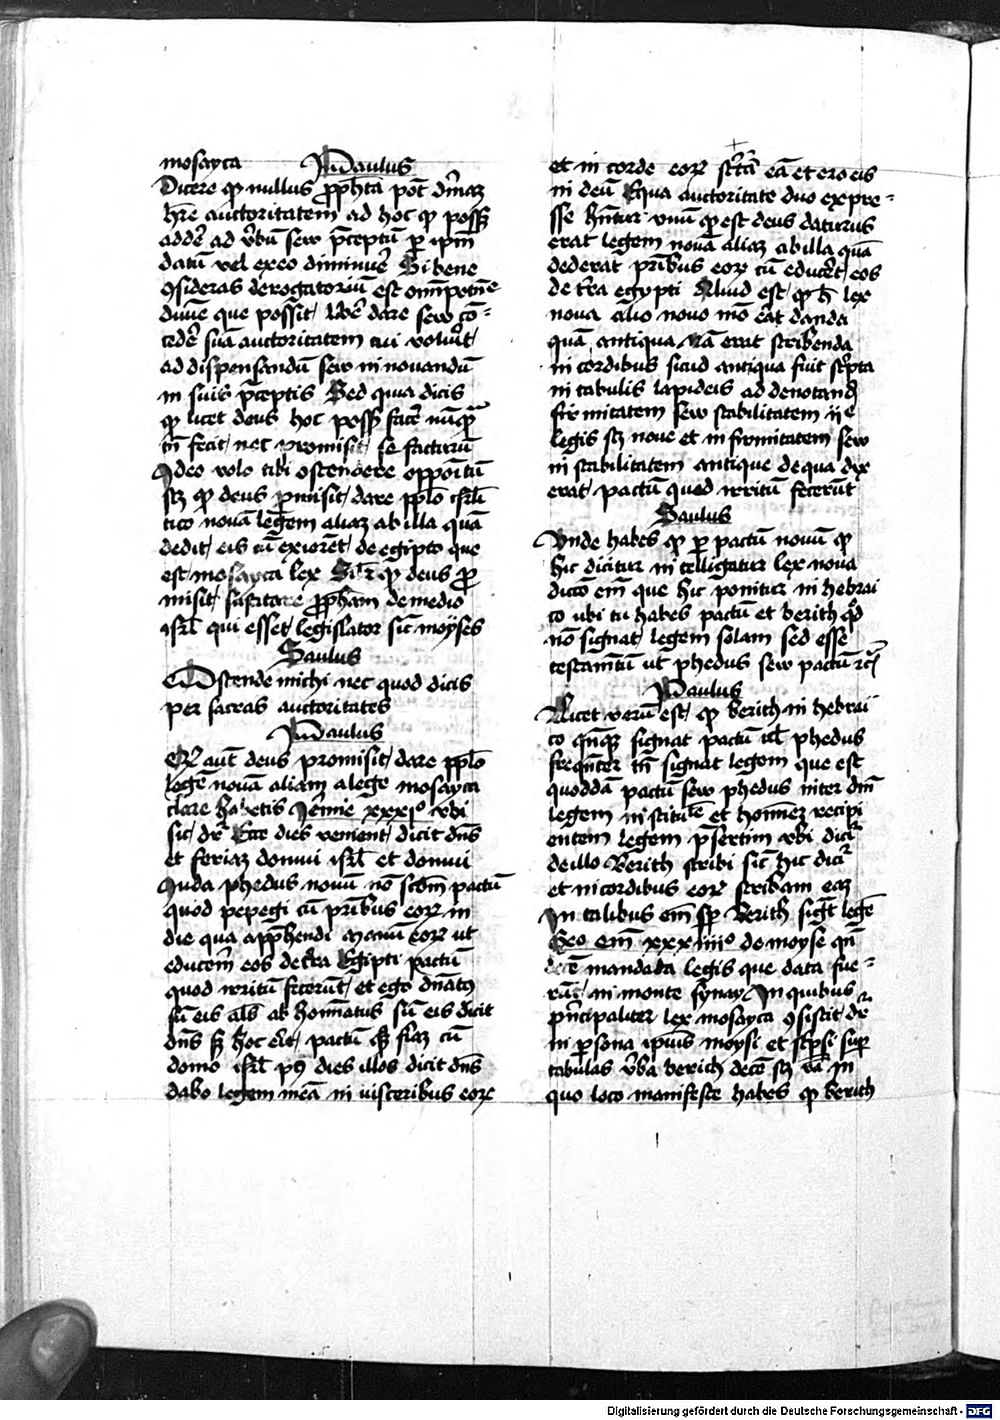 mosayca Paulus
Dicere ꝙ nullus ꝓph̄ta pot̄
hr̄e auctoritatem ad hoc ꝙ possꝫ
adde᷑ ad v̓bū seu p̄ceptū ꝑ ip̄m
datū vel ex eo diminue᷑ Si bene
ꝯsideras derogatoriū est
que possit
cede᷑ suā auctoritatem cui voluit
ad dispensandū seu in novandū
in suis p̄ceptis Sed quia dicis
ꝙ licet deus hoc possꝫ face᷑ nūꝙͣ
tn̄ fecit nec promisit se facturū
Ideo volo tibi ostendere oppoītū
scꝫ ꝙ deus ꝓmisit dare pplo isrl̄i
tico novā legem aliaꝫ ab illa quā
dedit eis cū exiorēt de egipto que
est mosayca lex Sil̄r ꝙ deus ꝓ
misit suscitare ꝓph̄am de medio
isrl̄ qui esset legislator sic̄ moyses
Saulus
Ostende michi nec quod dicis
per sacras auctoritates
Paulus
aut̄ deus promisit dare pplo
legē novā aliam a lege mosayca
clare habetis Jer̄mie xxxiº vbi
sic dr̄ Ecce dies venient dicit dn̄s
et feriaꝫ domui isrl̄ et domui
Iuda phedus novū nō scd̄m pactū
quod pepegi cū pr̄ibus eoꝝ in
die qua app̄hendi manū eoꝝ ut
educerē eos de t̄ra Egipti pactū
quod irritū fecerūt et ego dn̄atꝰ
sū eis dicit
dn̄s sꝫ hoc erit pactū qꝫ
domo isrl̄ pꝰ dies illos dicit dn̄s
dabo legem meā in visceribus eoꝝ
et in corde eoꝝ eā et ero eis
in deū Equa auctoritate duo expre=
sse hn̄tur vnū ꝙ est deus daturus
erat legem novā aliaꝫ ab illa quā
dederat pr̄ibus eoꝝ cū educe᷑t eos
de t̄ra egypti Aliud est ꝙ h̄ lex
nova alio novo mō erat danda
quā antiqua Nā erat scribenda
in cordibus sicud antiqua fuit sc̄pta
in tabulis lapideis ad denotandꝫ
firmitatem seu stabilitatem
legis scꝫ nove et infirmitatem seu
instabilitatem antique de qua dix
erat pactū quod irritū fecerūt
Saulus
Vnde habes ꝙ ꝑ pactū novū ꝙ
hic dicitur intelligatur lex nova
dictō em̄ que hic ponitur in hebrai
co ubi tu habes pactū et berith qd̄
nō signat legem solam sed esse
testamētū ut phedus seu pactū
Paulus
Licet verū est ꝙ berith in hebrai
co signat pactū vl̄ phedus
freqn̄ter tn̄ signat legem que est
quoddā pactū seu phedus inter dm̄
legem et hoīnem recipi
entem legem p̄sertim vbi dicit᷑
de illo Berith scribi sic̄ hic dicit᷑
et in cordibus eoꝝ scribam eaꝫ
In talibus em̄ sꝑ Berith sig̅t legē
xxxiiiiº de moyse qn̄
decē mandada legis que data fue=
rūt in monte synay In quibus
principaliter lex mosayca ꝯsistit dr̄
in ꝑsona ipsius moysi et sc̄psi suꝑ
tabulas v̓ba berith decē scꝫ In
quo loco manifeste habes ꝙ berith
Digitalisierung gefördert durch die Deutsche Forschungsgemeinschaft - DFG